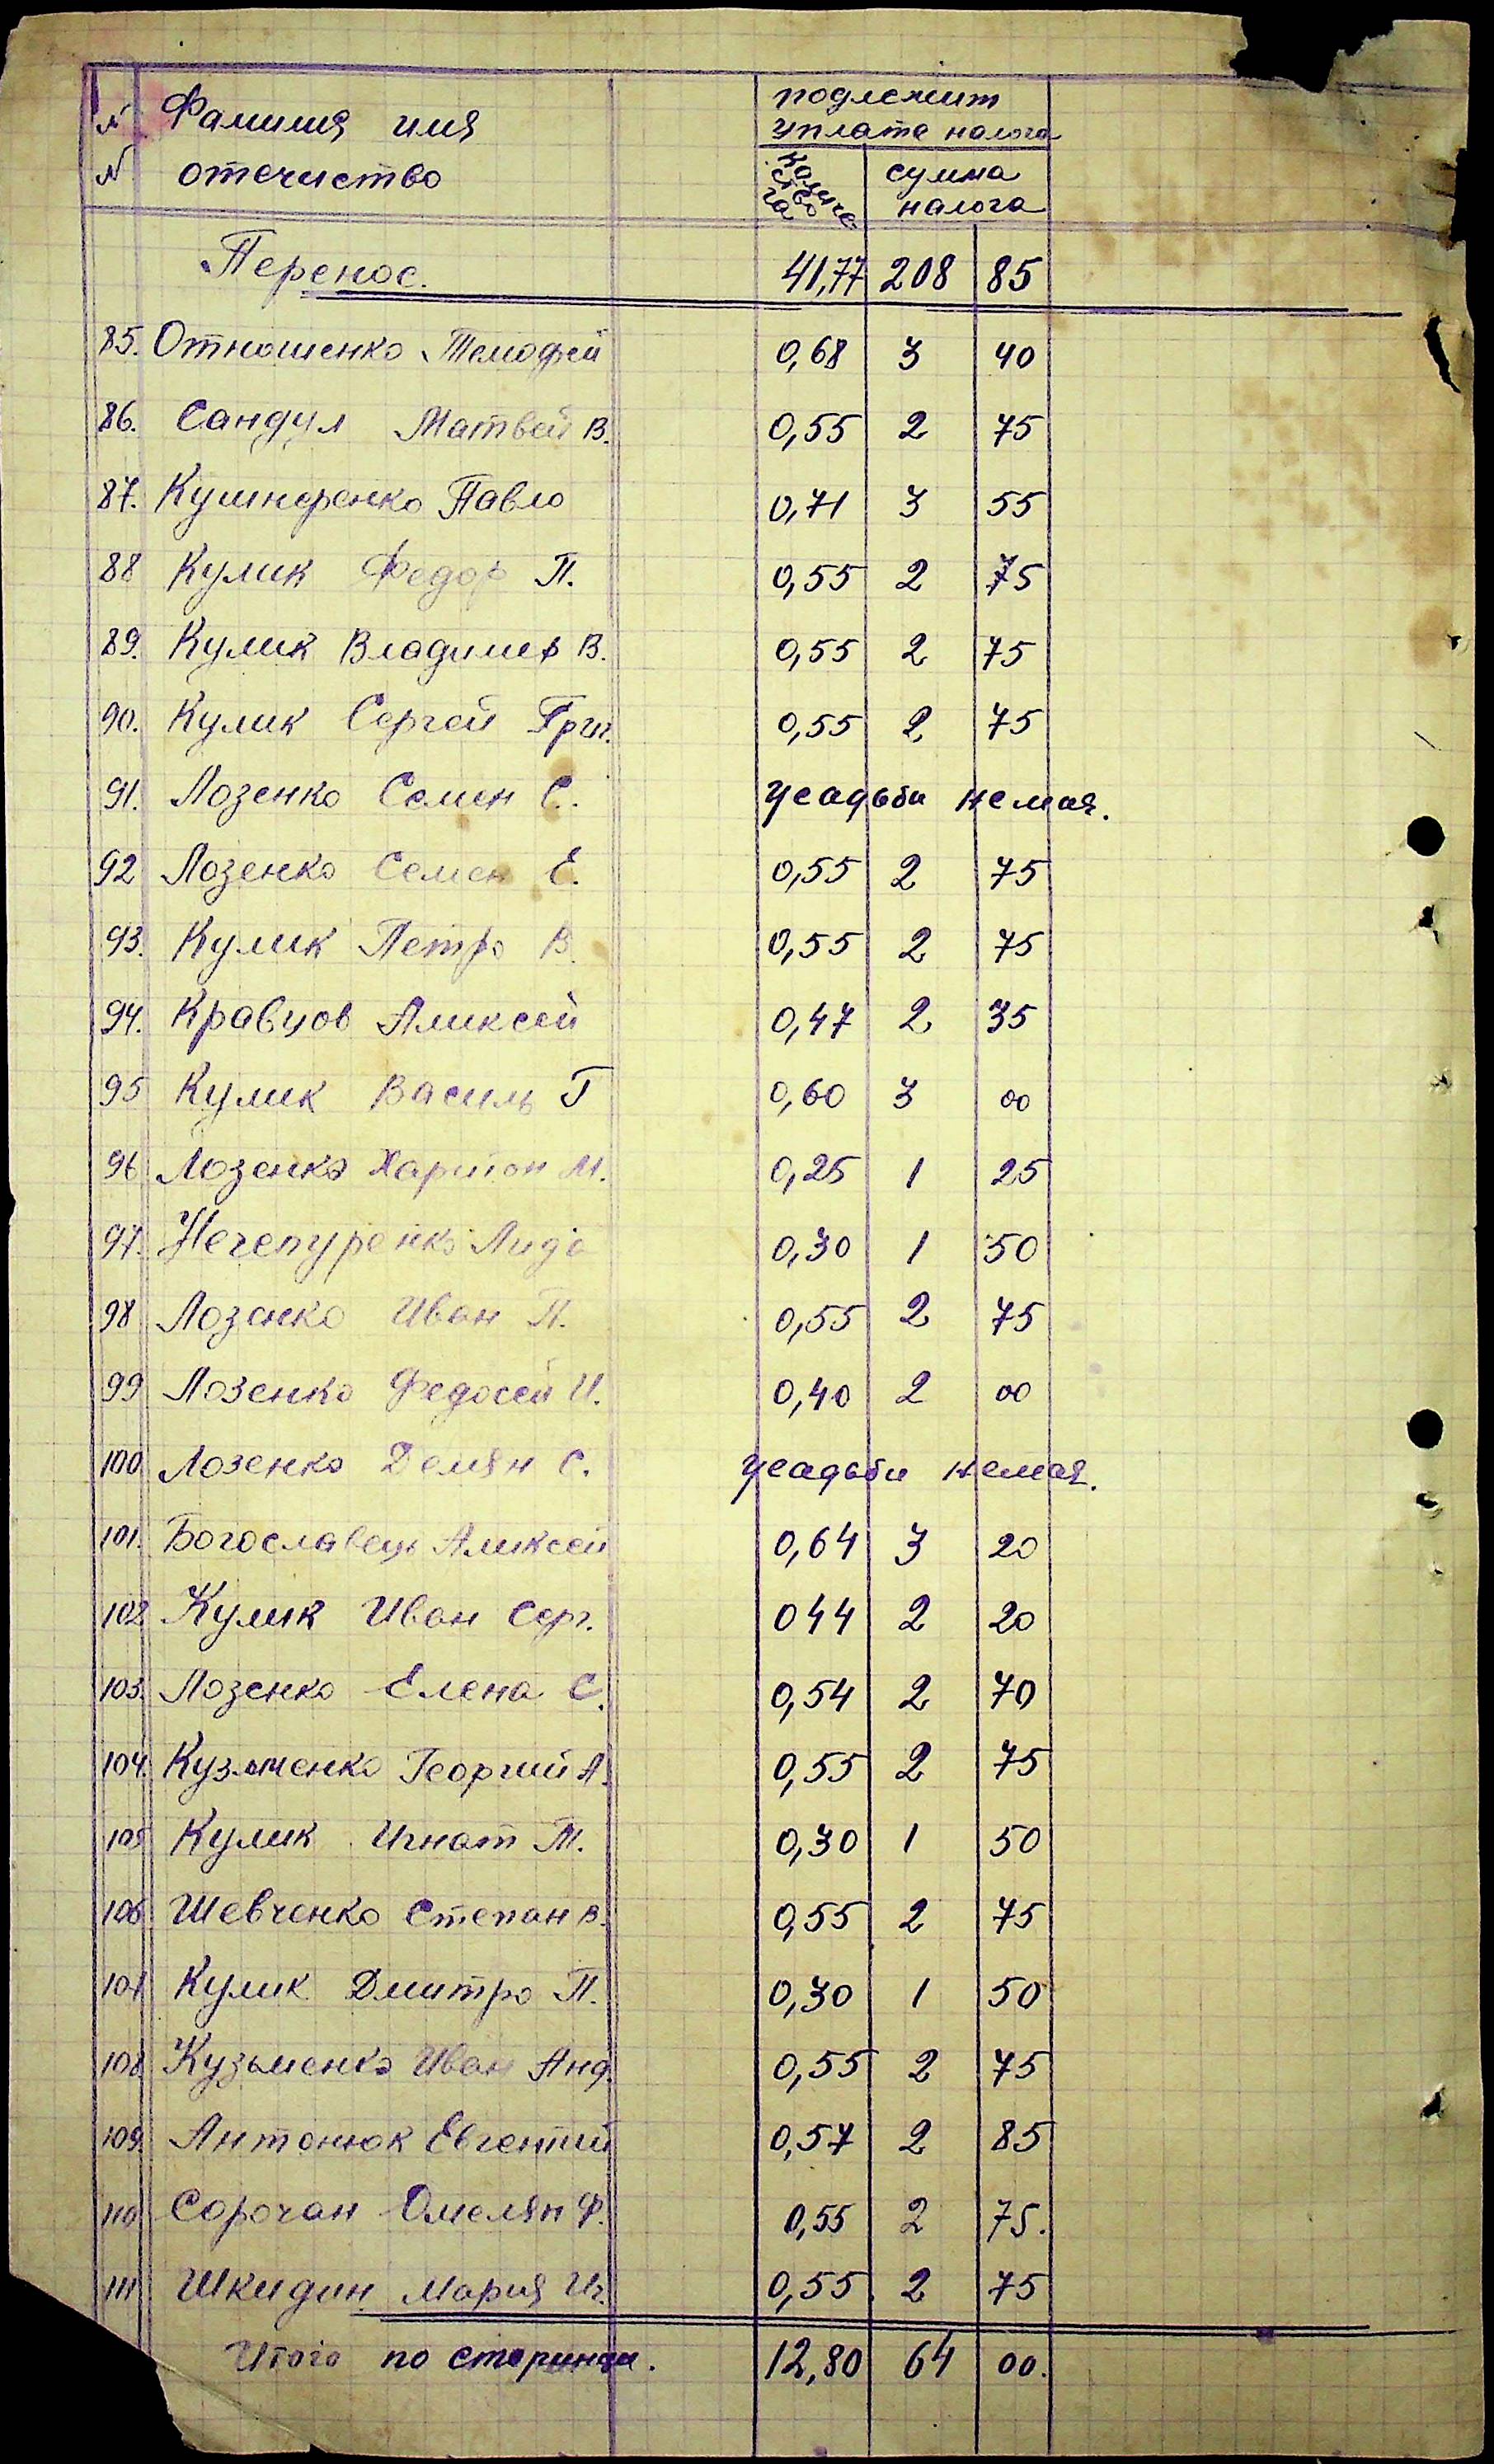 № Фамилия имя
№ отечиство
подлежит
уплате налога
количе
ство
га
сумма
налога
Перенос. 41,77 208 85
85. Отношенко Темофей 0,68 3 40
86. Сандул Матвей В. 0,55 2 75
87. Кушнеренко Павло 0,71 3 55
88 Кулик Федор П. 0,55 2 75
89. Кулик Владимер В. 0,55 2 75
90. Кулик Сергей Григ. 0,55 2 75
91. Лозенко Семен С. усадьби немая.
92 Лозенко Семен Е. 0,55 2 75
93. Кулик Петро В. 0,55 2 75
94. Кравцов Аликсей 0,47 2 35
95 Кулик Василь Г 0,60 3 00
96 Лозенко Харитон М. 0,25 1 25
97. Нечепуренко Лида 0,30 1 50
98 Лозенко Иван П. 0,55 2 75
99 Лозенко Федосей И. 0,40 2 00
100 Лозенко Демян С. усадьби немая.
101. Богославець Аликсей 0,64 3 20
102 Кулик Иван Серг. 044 2 20
103. Лозенко Елена С. 0,54 2 70
104. Кузьменко Георгий А. 0,55 2 75
105 Кулик Игнат М. 0,30 1 50
106 Шевченко Степан В. 0,55 2 75
107 Кулик Дмитро П. 0,30 1 50
108 Кузьменко Иван Анд. 0,55 2 75
109. Антонюк Евгентий 0,57 2 85
110 Сорочан Омелян Ф. 0,55 2 75.
111 Шкидин Мария Иг. 0,55 2 75
Итого по сторинци. 12,80 64 00.